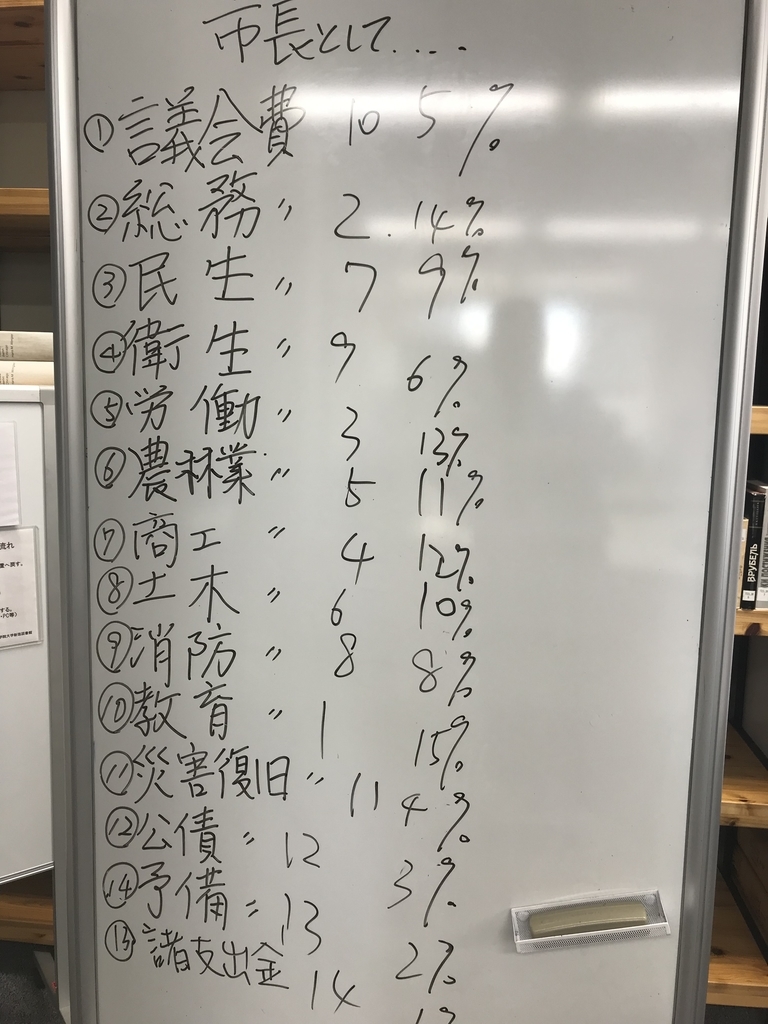 市長として....
① 議会費 10 5%
② 総務 〃 2. 14%
③ 民生 〃 7 9%
④ 衛生 〃 9 6%
⑤ 労働 〃 3 13%
⑥ 農林業 〃 5 11%
⑦ 商工 〃 4 12%
⑧ 土木 〃 6 10%
⑨ 消防 〃 8 8%
⑩ 教育 〃 1 15%
⑪ 災害復旧 〃 11 4%
⑫ 公債 〃 12 3%
⑭ 予備 〃 13 2%
⑬ 諸支出金 14
ВРУБЕЛЬ